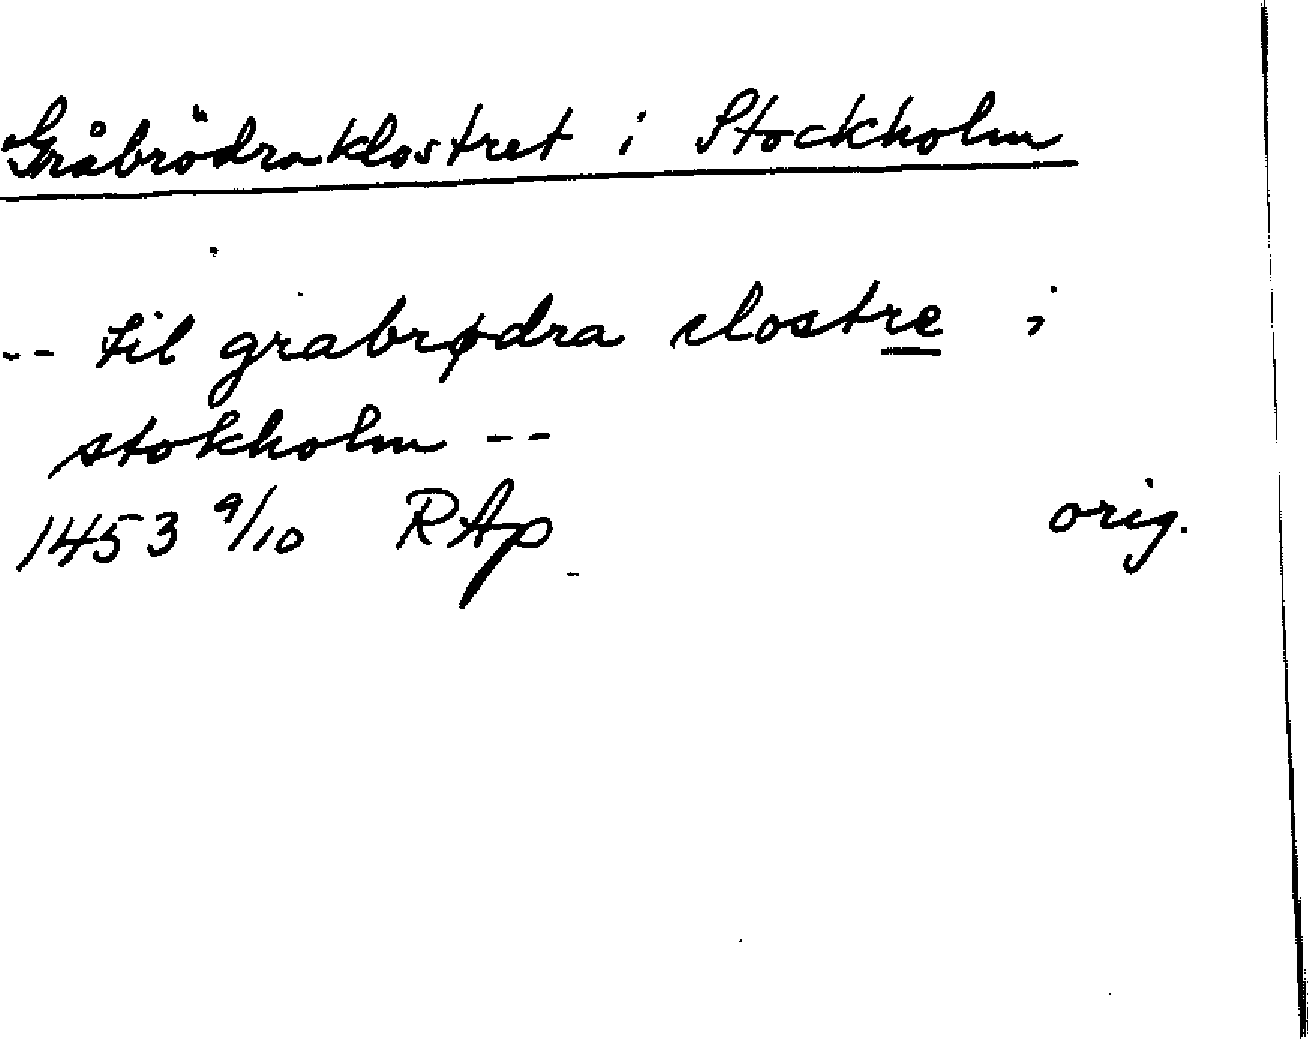 Gråbrödraklostret i Stockholm
-- til grabrødra clostre i
stokholm --
1453 9/10 RAp orig.